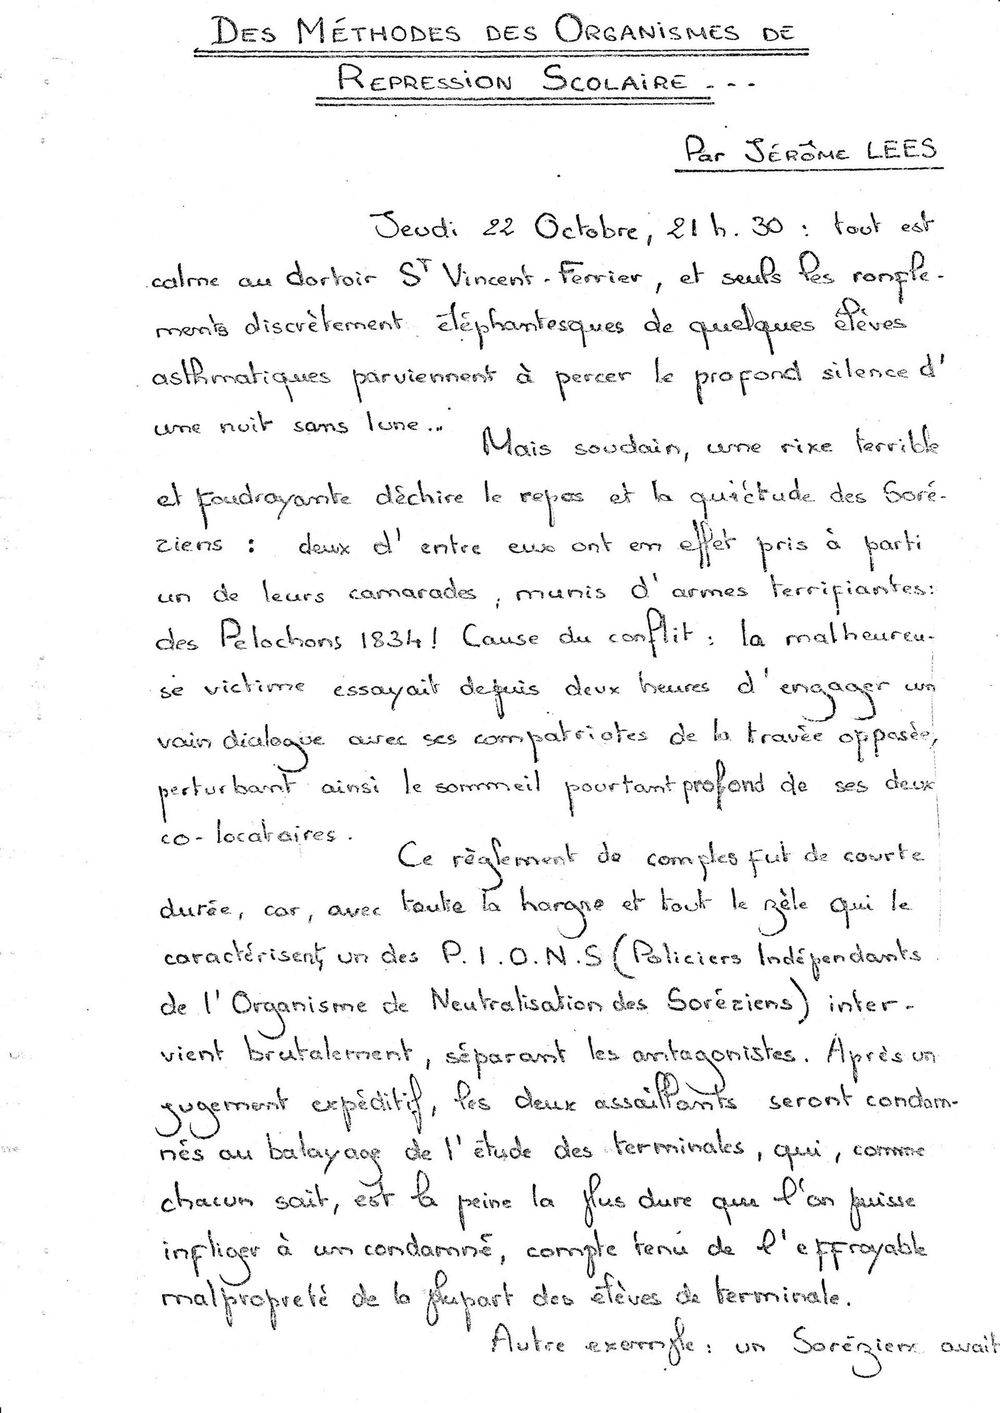 DES MÉTHODES DES ORGANISMES DE
REPRESSION SCOLAIRE ---
Par JÉRÔME LEES
Jeudi 22 Octobre, 21 h. 30 : tout est
calme au dortoir ST Vincent-Ferrier, et seuls les ronfle-
ments discrètement éléphantesques de quelques élèves
asthmatiques parviennent à percer le profond silence d'
une nuit sans lune...
Mais soudain, une rixe terrible
et foudroyante déchire le repos et la quiétude des Soré-
ziens : deux d'entre eux ont en effet pris à parti
un de leurs camarades, munis d'armes terrifiantes:
des Pelochons 1834! Cause du conflit : la malheureu-
se victime essayait depuis deux heures d'engager un
vain dialogue avec ses compatriotes de la travée opposée,
perturbant ainsi le sommeil pourtant profond de ses deux
co-locataires.
Ce règlement de comptes fut de courte
durée, car, avec toute la hargne et tout le zèle qui le
caractérisent, un des P.I.O.N.S (Policiers Indépendants
de l'Organisme de Neutralisation des Soréziens) inter-
vient brutalement, séparant les antagonistes. Après un
jugement expéditif, les deux assaillants seront condam-
nés au balayage de l'étude des terminales, qui, comme
chacun sait, est la peine la plus dure que l'on puisse
infliger à un condamné, compte tenu de l'effroyable
malpropreté de la plupart des élèves de terminale.
Autre exemple : un Sorézien avait